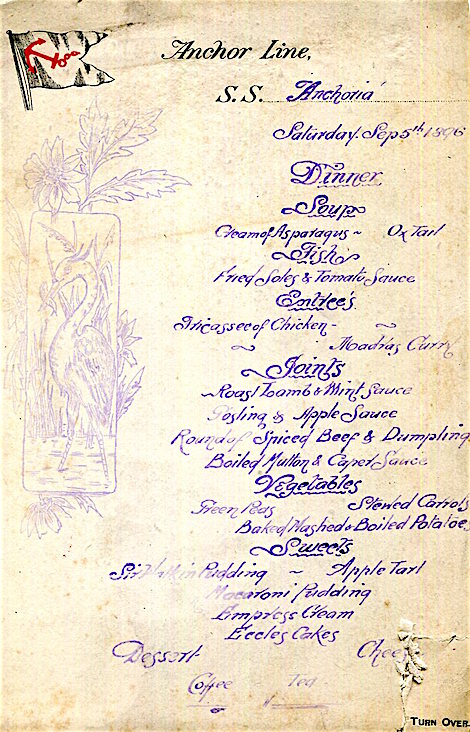 Anchor Line,
S.S. Anchoria
Saturday Sep 5th 1896
Dinner
Soup
Cream of Asparagus ~ Ox Tail
Fish
Fried Soles & Tomato Sauce
Entree's
Fricassee of Chicken -
~ Madras Curry
Joints
Roast Lamb & Mint Sauce
Gosling & Apple Sauce
Round of Spiced Beef & Dumpling
Boiled Mutton & Caper Sauce
Vegetables
Green Peas Stewed Carrots
Baked Mashed & Boiled Potatoes
Sweets
Sir Pudding ~ Apple Tart
Macaroni Pudding
Empress Cream
Eccles Cakes
Dessert Chee
Coffee Tea
TURN OVER.